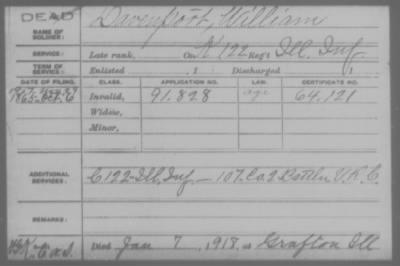 DEAD
NAME OF SOLDIER: Davenport, William
SERVICE: Late rank, Co. K 122 Reg't Ill. Inf
TERM OF SERVICE: Enlisted , 1 Discharged , 1
DATE OF FILING. CLASS. APPLICATION NO. LAW. CERTIFICATE NO.
1865-Oct. 6 Invalid, 91.828 age 64.121
Widow,
Minor,
ADDITIONAL SERVICES: C 122-Ill, Inf — 107. Co. 2 Battln V.R.C.
REMARKS:
Died Jan 7, 1918, at Grafton Ill